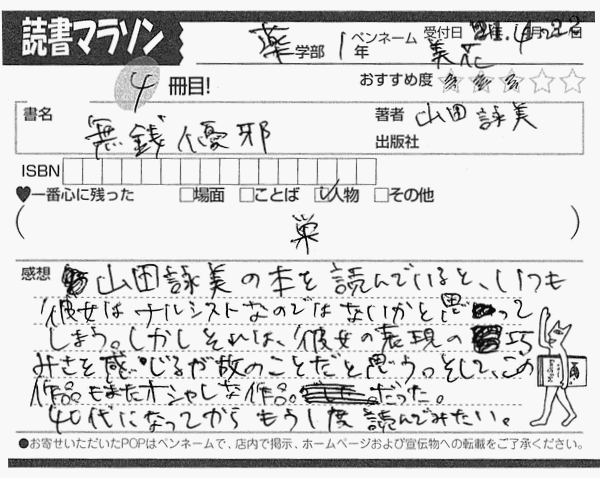 読書マラソン
薬学部 1年 ペンネーム 美花 受付日 4月22日
4冊目! おすすめ度 ★★★☆☆
書名 無銭優邪 著者 山田詠美
出版社
ISBN
♥一番心に残った □場面 □ことば ☑人物 □その他
( 栄 )
感想 山田詠美の本を読んでいると、いつも
彼女はナルシストなのではないかと思って
しまう。しかしそれは、彼女の表現の巧
みさを感じるが故のことだと思う。そして、この
作品もまたオシャレな作品。だった。
40代になってから もう1度 読んでみたい。
●お寄せいただいたPOPはペンネームで、店内で掲示、ホームページおよび宣伝物への転載をご了承ください。